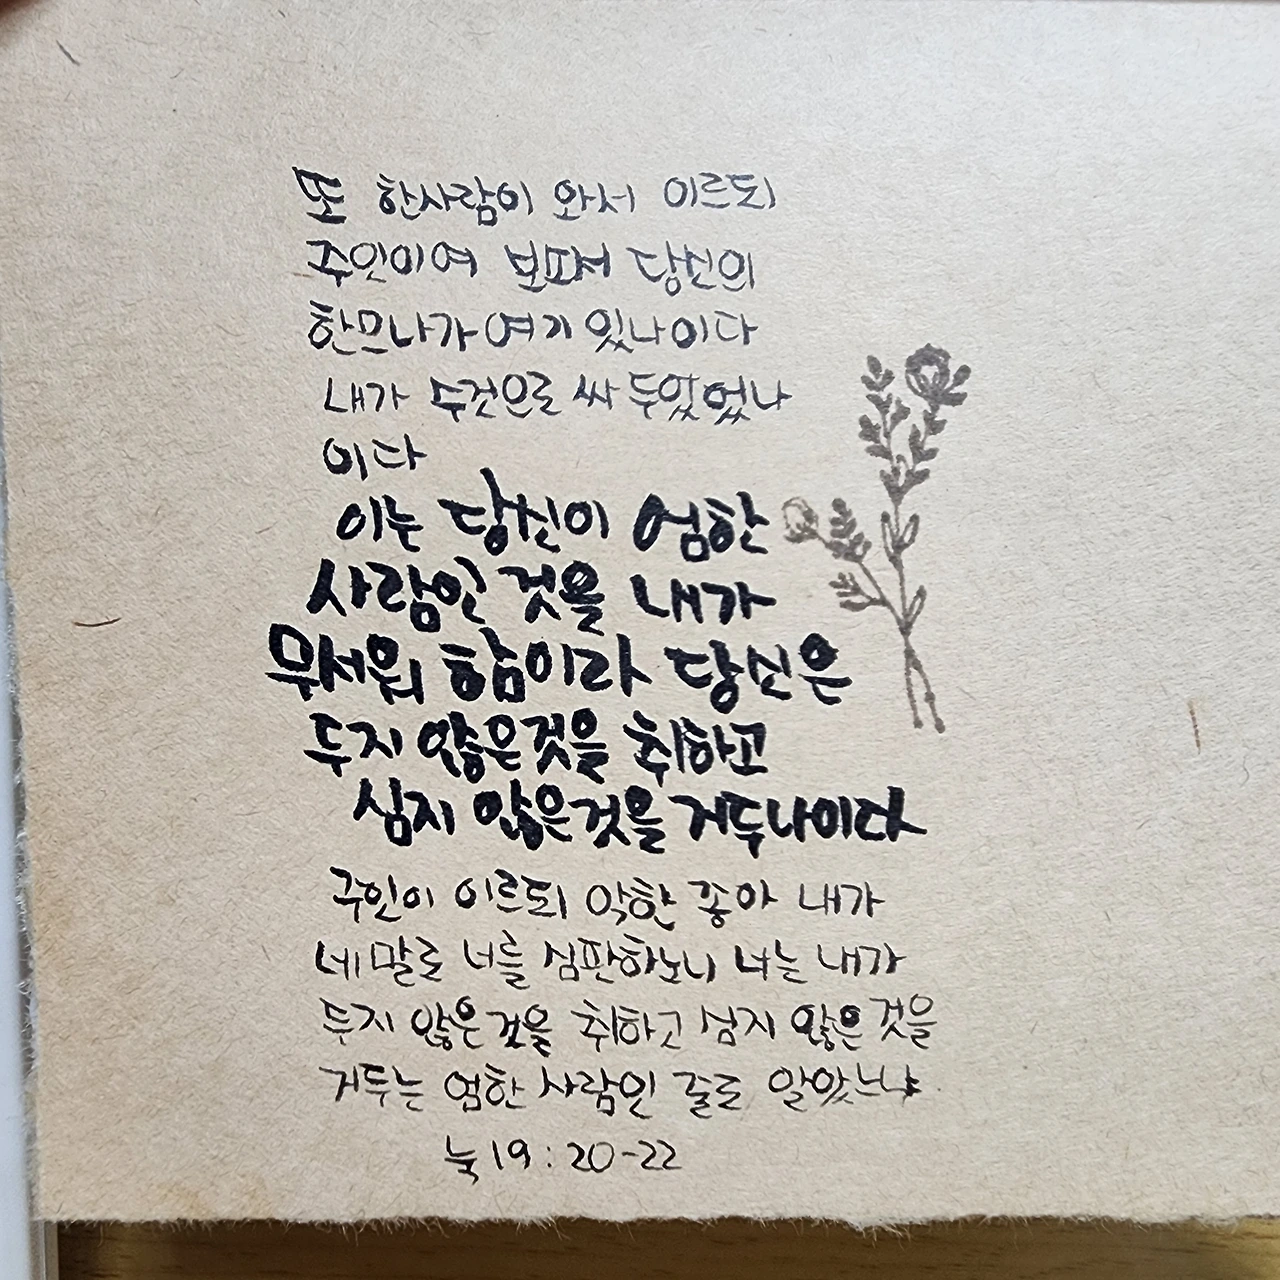 또 한사람이 와서 이르되
주인이여 보쇠서 당신의
한므나가 여기 있나이다
내가 수건으로 싸 두었었나
이다
이는 당신이 엄한
사람인 것을 내가
무서워 함이라 당신은
두지 않은것을 취하고
심지 않은것을 거두나이다
주인이 이르되 악한 종아 내가
네 말로 너를 심판하노니 너는 내가
두지 않은것을 취하고 심지 않은것을
거두는 엄한 사람인 줄로 알았느냐
눅 19:20-22